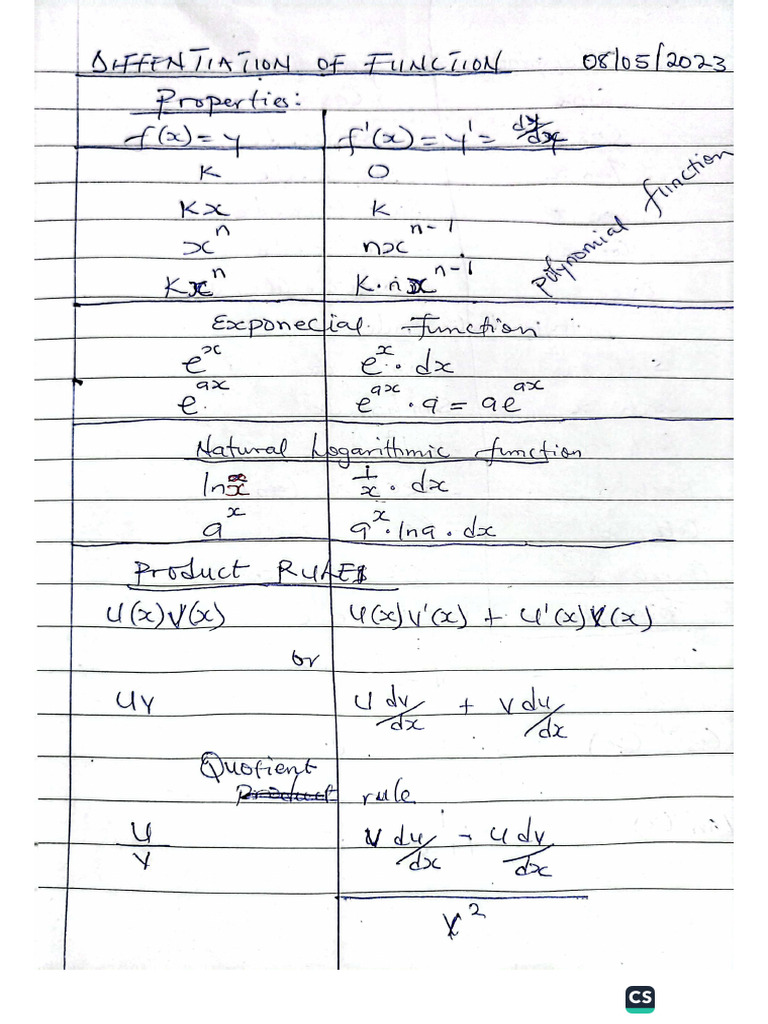 DIFFENTIATION OF FUNCTION 08/05/2023
Properties:
f(x) = y f'(x) = y' = dy/dx
K 0
Kx K
x^n nx^n-1
Kx^n K·nx^n-1
polynomial function
Exponecial Function
e^x e^x · dx
e^ax e^ax · a = ae^ax
Natural Logarithmic function
ln x 1/x · dx
a^x a^x · lna · dx
Product RULES
U(x)V(x) U(x)V'(x) + U'(x)V(x)
or
UV U dv/dx + V du/dx
Quotient
Product rule
U/V V du/dx - U dv/dx
V^2
CS